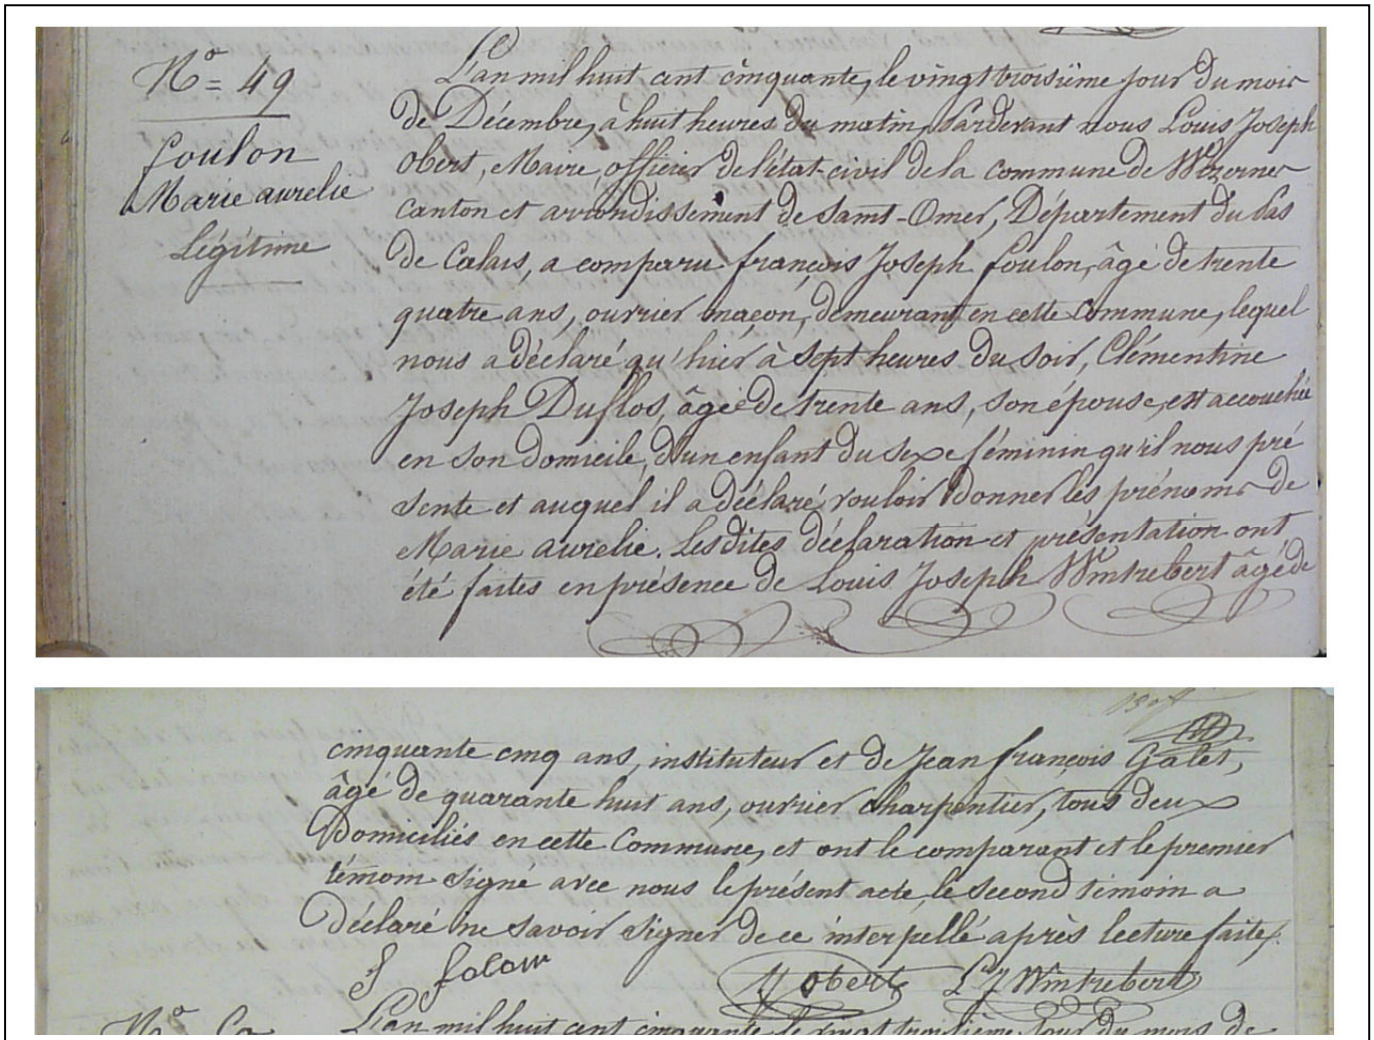 N° = 49
foulon
Marie aurelie
Légitime
L'an mil huit cent cinquante, le vingt troisiïème jour du mois
de Décembre, à huit heures du matin, Pardevant nous Louis Joseph
obert, Maire, officier de l'état-civil de la commune de Wizernes
canton et arrondissement de Saint-Omer, Département du Pas
de Calais, a comparu françois Joseph foulon, âgé de trente
quatre ans, ouvrier maçon, demeurant en cette Commune, lequel
nous a déclaré qu'hier à sept heures du soir, Clémentine
Joseph Duflos, âgée de trente ans, son épouse, est accouchée
en son domicile, d'un enfant du sexe féminin qu'il nous pré
sente et auquel il a déclaré vouloir donner les prénoms de
Marie aurelie. Lesdites déclaration et présentation ont
été faites en présence de Louis Joseph Wintrebert âgé de
cinquante cinq ans, instituteur et de Jean françois Galet,
âgé de quarante huit ans, ouvrier charpentier, tous deux
Domiciliés en cette Commune, et ont le comparant et le premier
témoin signé avec nous le présent acte, le second témoin a
Déclaré ne savoir signer de ce interpellé après lecture faite.
f folon
obert L J Wintrebert
N°
L'an mil huit cent cinquante le vingt troisième jour du mois de